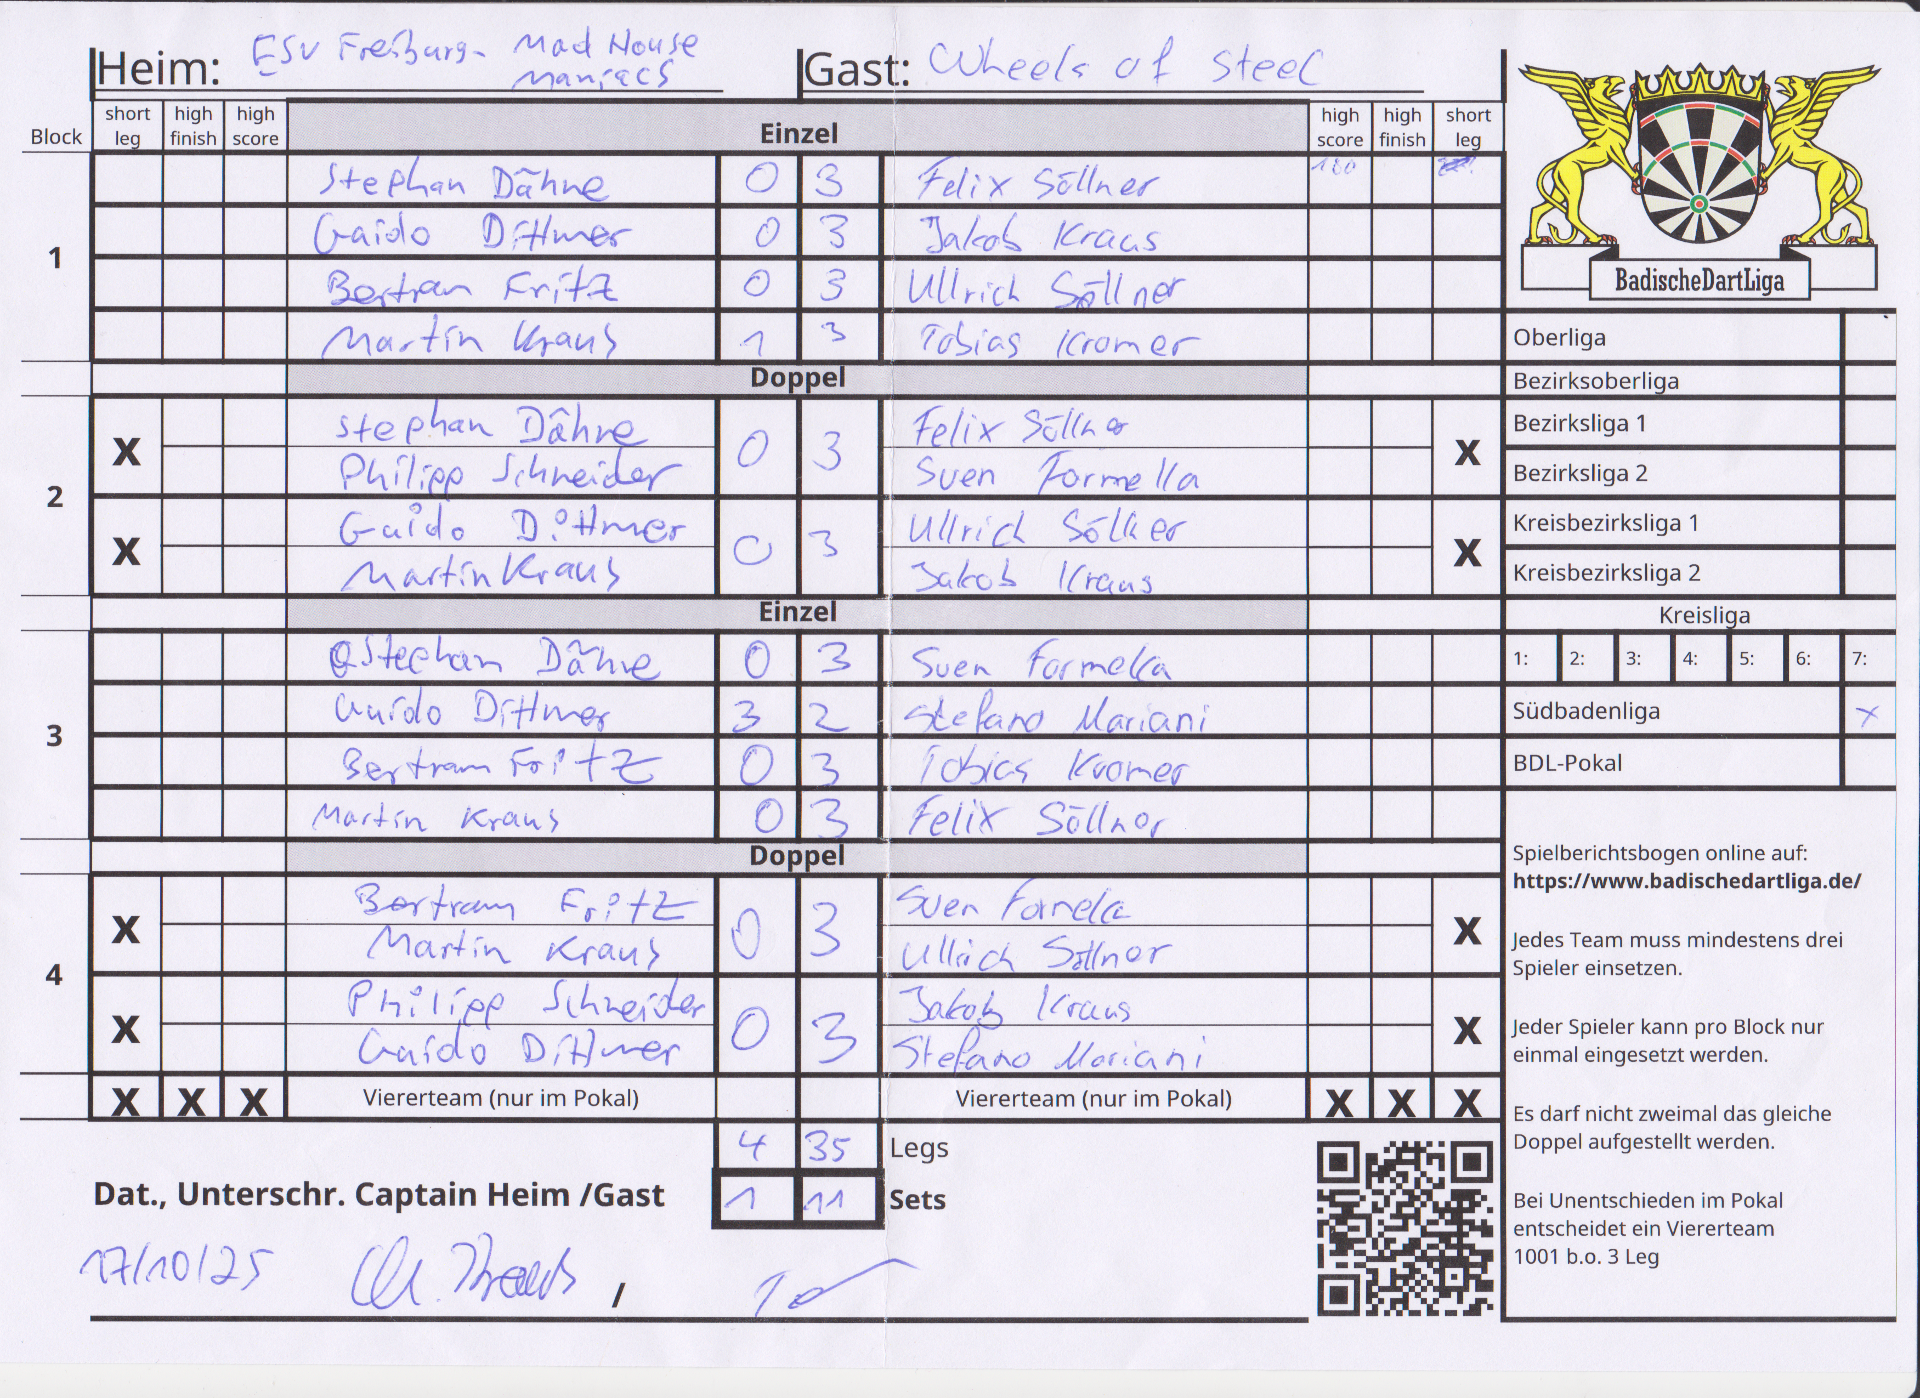 Heim: ESV Freiburg- Mad House Maniacs Gast: Wheels of Steel
Block short leg high finish high score Einzel high score high finish short leg
1
Stephan Dähne 0 3 Felix Söllner 180
Guido Dittmer 0 3 Jakob Kraus
Bertram Fritz 0 3 Ullrich Söllner
Martin Kraus 1 3 Tobias Kromer
Doppel
2
X Stephan Dähne 0 3 Felix Söllner X
Philipp Schneider Sven Formella
X Guido Dittmer 0 3 Ullrich Söllner X
Martin Kraus Jakob Kraus
Einzel
3
Stephan Dähne 0 3 Sven Formella
Guido Dittmer 3 2 Stefano Mariani
Bertram Fritz 0 3 Tobias Kromer
Martin Kraus 0 3 Felix Söllner
Doppel
4
X Bertram Fritz 0 3 Sven Formella X
Martin Kraus Ullrich Söllner
X Philipp Schneider 0 3 Jakob Kraus X
Guido Dittmer Stefano Mariani
X X X Viererteam (nur im Pokal) Viererteam (nur im Pokal) X X X
4 35 Legs
Dat., Unterschr. Captain Heim /Gast 1 11 Sets
17/10/25 M. Kraus /
BadischeDartLiga
Oberliga
Bezirksoberliga
Bezirksliga 1
Bezirksliga 2
Kreisbezirksliga 1
Kreisbezirksliga 2
Kreisliga
1: 2: 3: 4: 5: 6: 7:
Südbadenliga x
BDL-Pokal
Spielberichtsbogen online auf:
https://www.badischedartliga.de/
Jedes Team muss mindestens drei
Spieler einsetzen.
Jeder Spieler kann pro Block nur
einmal eingesetzt werden.
Es darf nicht zweimal das gleiche
Doppel aufgestellt werden.
Bei Unentschieden im Pokal
entscheidet ein Viererteam
1001 b.o. 3 Leg